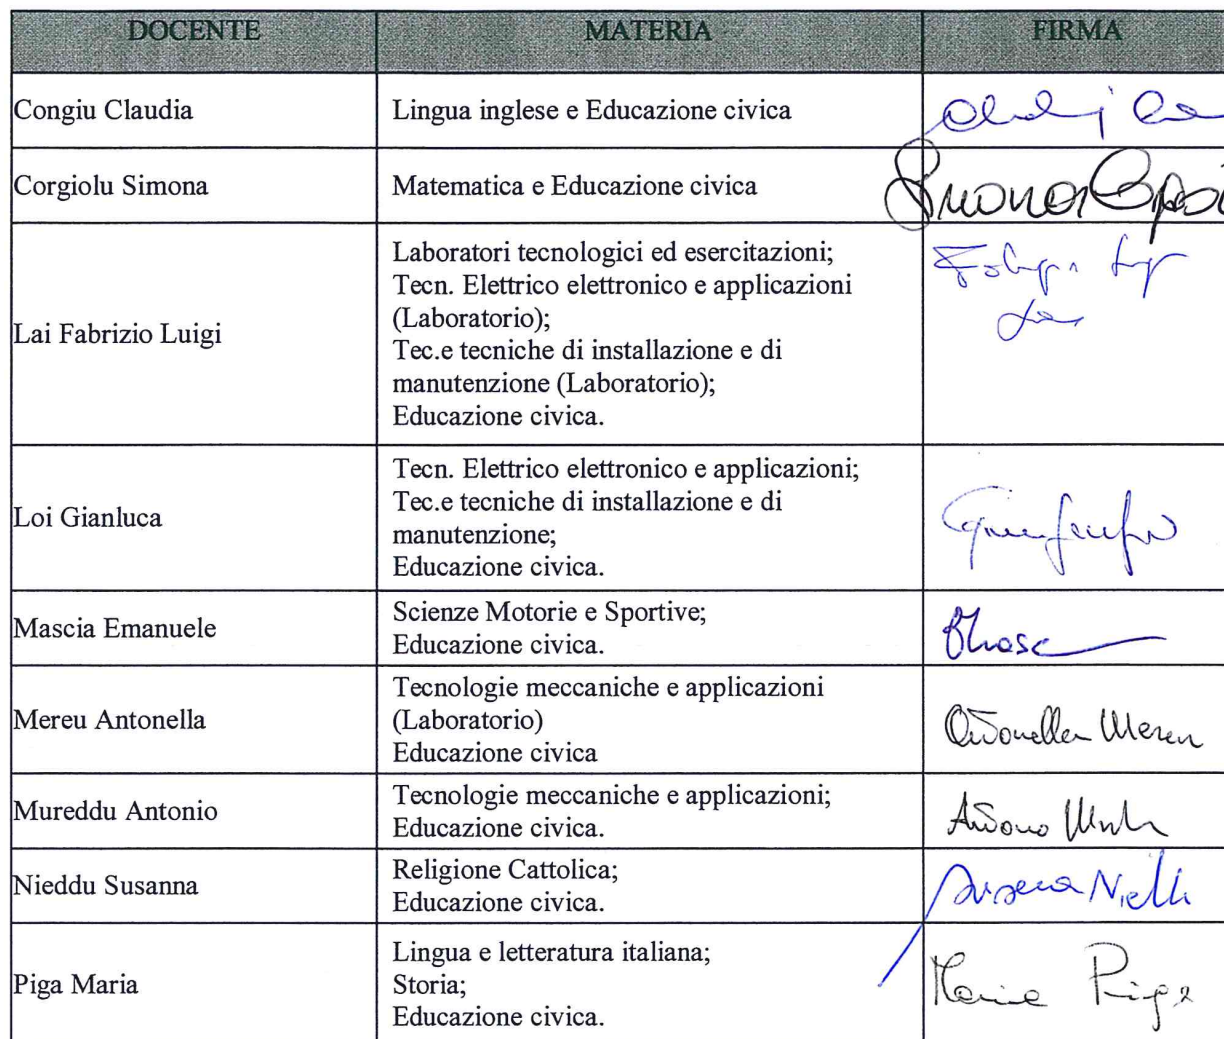 DOCENTE MATERIA FIRMA
Congiu Claudia Lingua inglese e Educazione civica
Corgiolu Simona Matematica e Educazione civica Simona
Lai Fabrizio Luigi
Laboratori tecnologici ed esercitazioni;
Tecn. Elettrico elettronico e applicazioni
(Laboratorio);
Tec.e tecniche di installazione e di
manutenzione (Laboratorio);
Educazione civica.
Loi Gianluca
Tecn. Elettrico elettronico e applicazioni;
Tec.e tecniche di installazione e di
manutenzione;
Educazione civica.
Mascia Emanuele
Scienze Motorie e Sportive;
Educazione civica.
Mereu Antonella
Tecnologie meccaniche e applicazioni
(Laboratorio)
Educazione civica
Antonella Mereu
Mureddu Antonio
Tecnologie meccaniche e applicazioni;
Educazione civica.
Antonio
Nieddu Susanna
Religione Cattolica;
Educazione civica.
Piga Maria
Lingua e letteratura italiana;
Storia;
Educazione civica.
Maria Piga